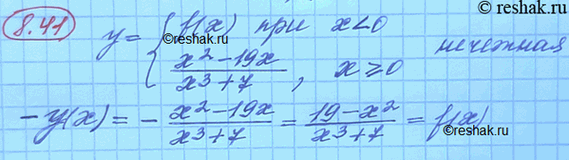 reshak.ru
8.41
y = { f(x) при x<0
(x² - 19x)/(x³ + 7), x ≥ 0 нечетная
-y(x) = - (x² - 19x)/(x³ + 7) = (19 - x²)/(x³ + 7) = f(x)
reshak.ru